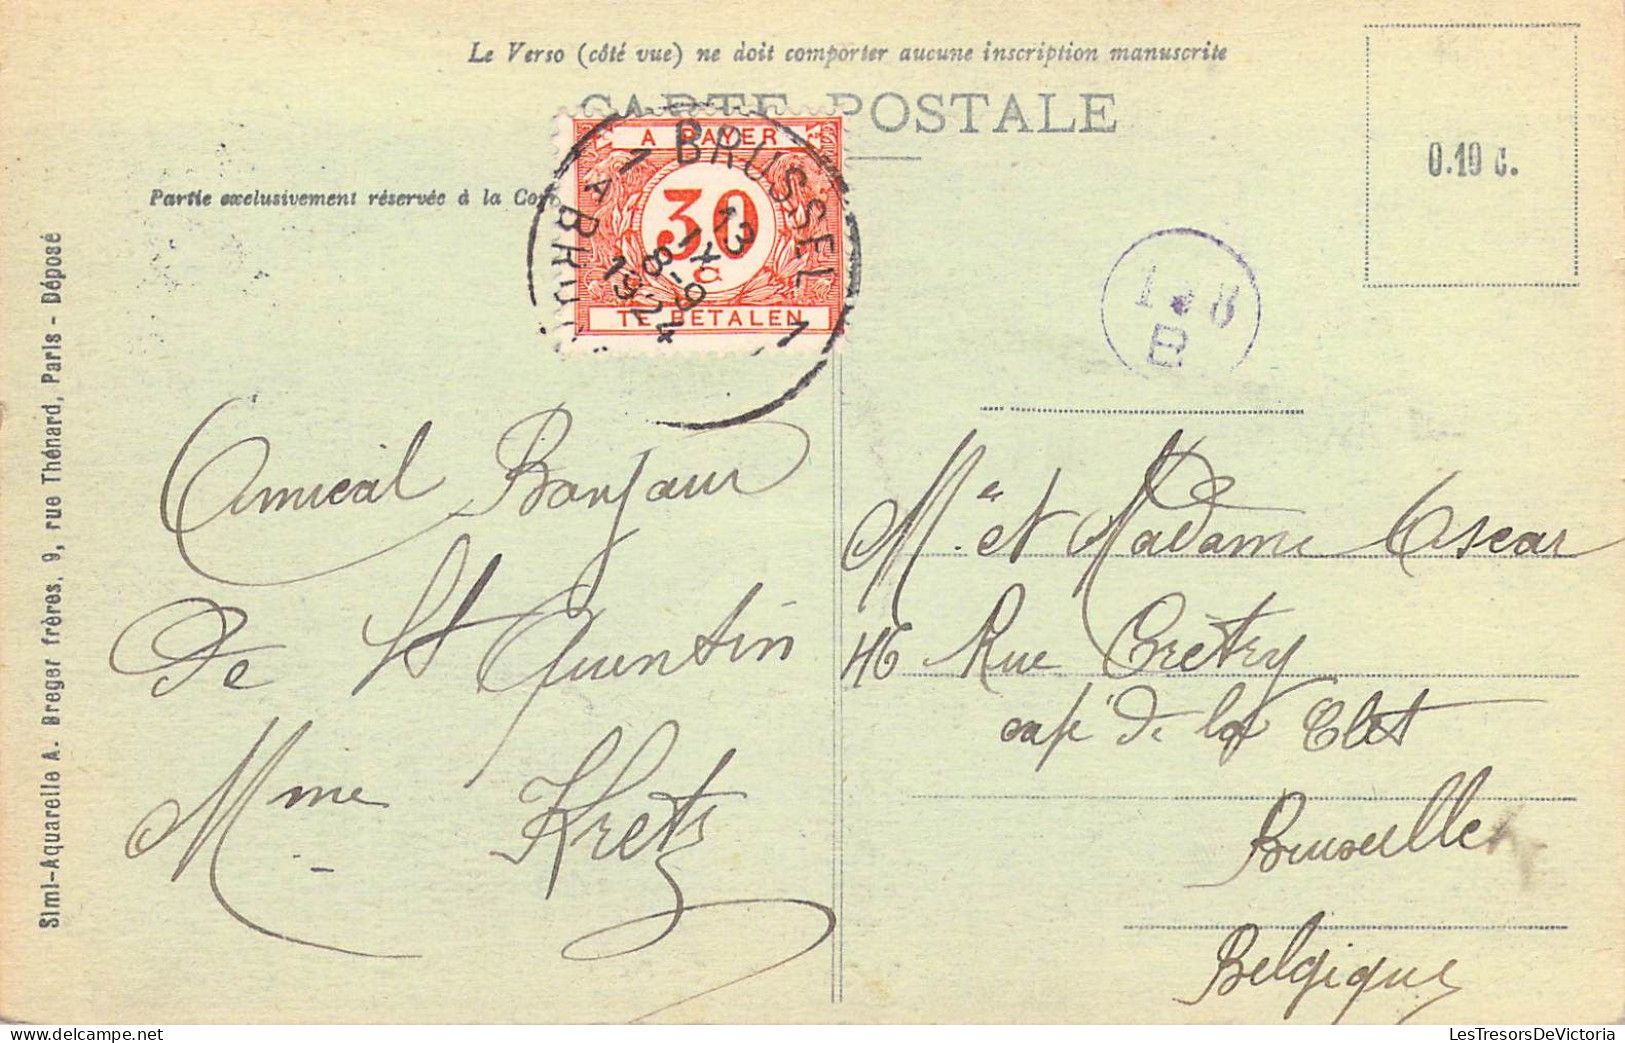 Le Verso (côté vue) ne doit comporter aucune inscription manuscrite
CARTE POSTALE
0.10 c.
Partie exclusivement réservée à la Co
A PAYER
30
C
TE BETALEN
BRUSSEL 1
1A BRU
13
IX
8-9
1924
B
Simi-Aquarelle A. Breger frères, 9, rue Thénard, Paris - Déposé
Amical Bonjour
de St Quentin
Mme Kretz
Mr et Madame Oscar
46 Rue Gretry
café de la
Bruxelles
Belgique
LesTresorsDeVictoria.com